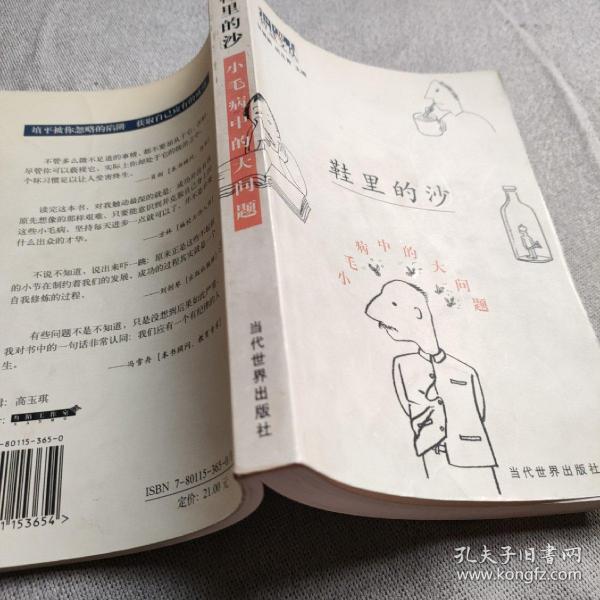 鞋里的沙
小毛病中的大问题
当代世界出版社
鞋里的沙
小毛病中的大问题
当代世界出版社
填平被你忽略的陷阱 获取自己应有的成
不管多么微不足道的事情，都不要
尽管你可以藐视它，实际上你却处于它的
个坏习惯足以让人受害终生。
读完这本书，对我触动最深的就是：成功
原先想像的那样艰难，只要能意识到并克服自己身
这些小毛病，坚持每天进步一点就可以了，并不
什么出众的才华。
不说不知道，说出来吓一跳：原来正是这些不起眼
的小节在制约着我们的发展，成功的过程其实就是一个
自我修炼的过程。
有些问题不是不知道，只是没想到后果如此严重，
我对书中的一句话非常认同：我们应有一个有纪律的人
生。
高玉琪
工作室
-80115-365-0
ISBN 7-80115-365-0
定价: 21.00 元
153654>
孔夫子旧书网
www.kongfz.com